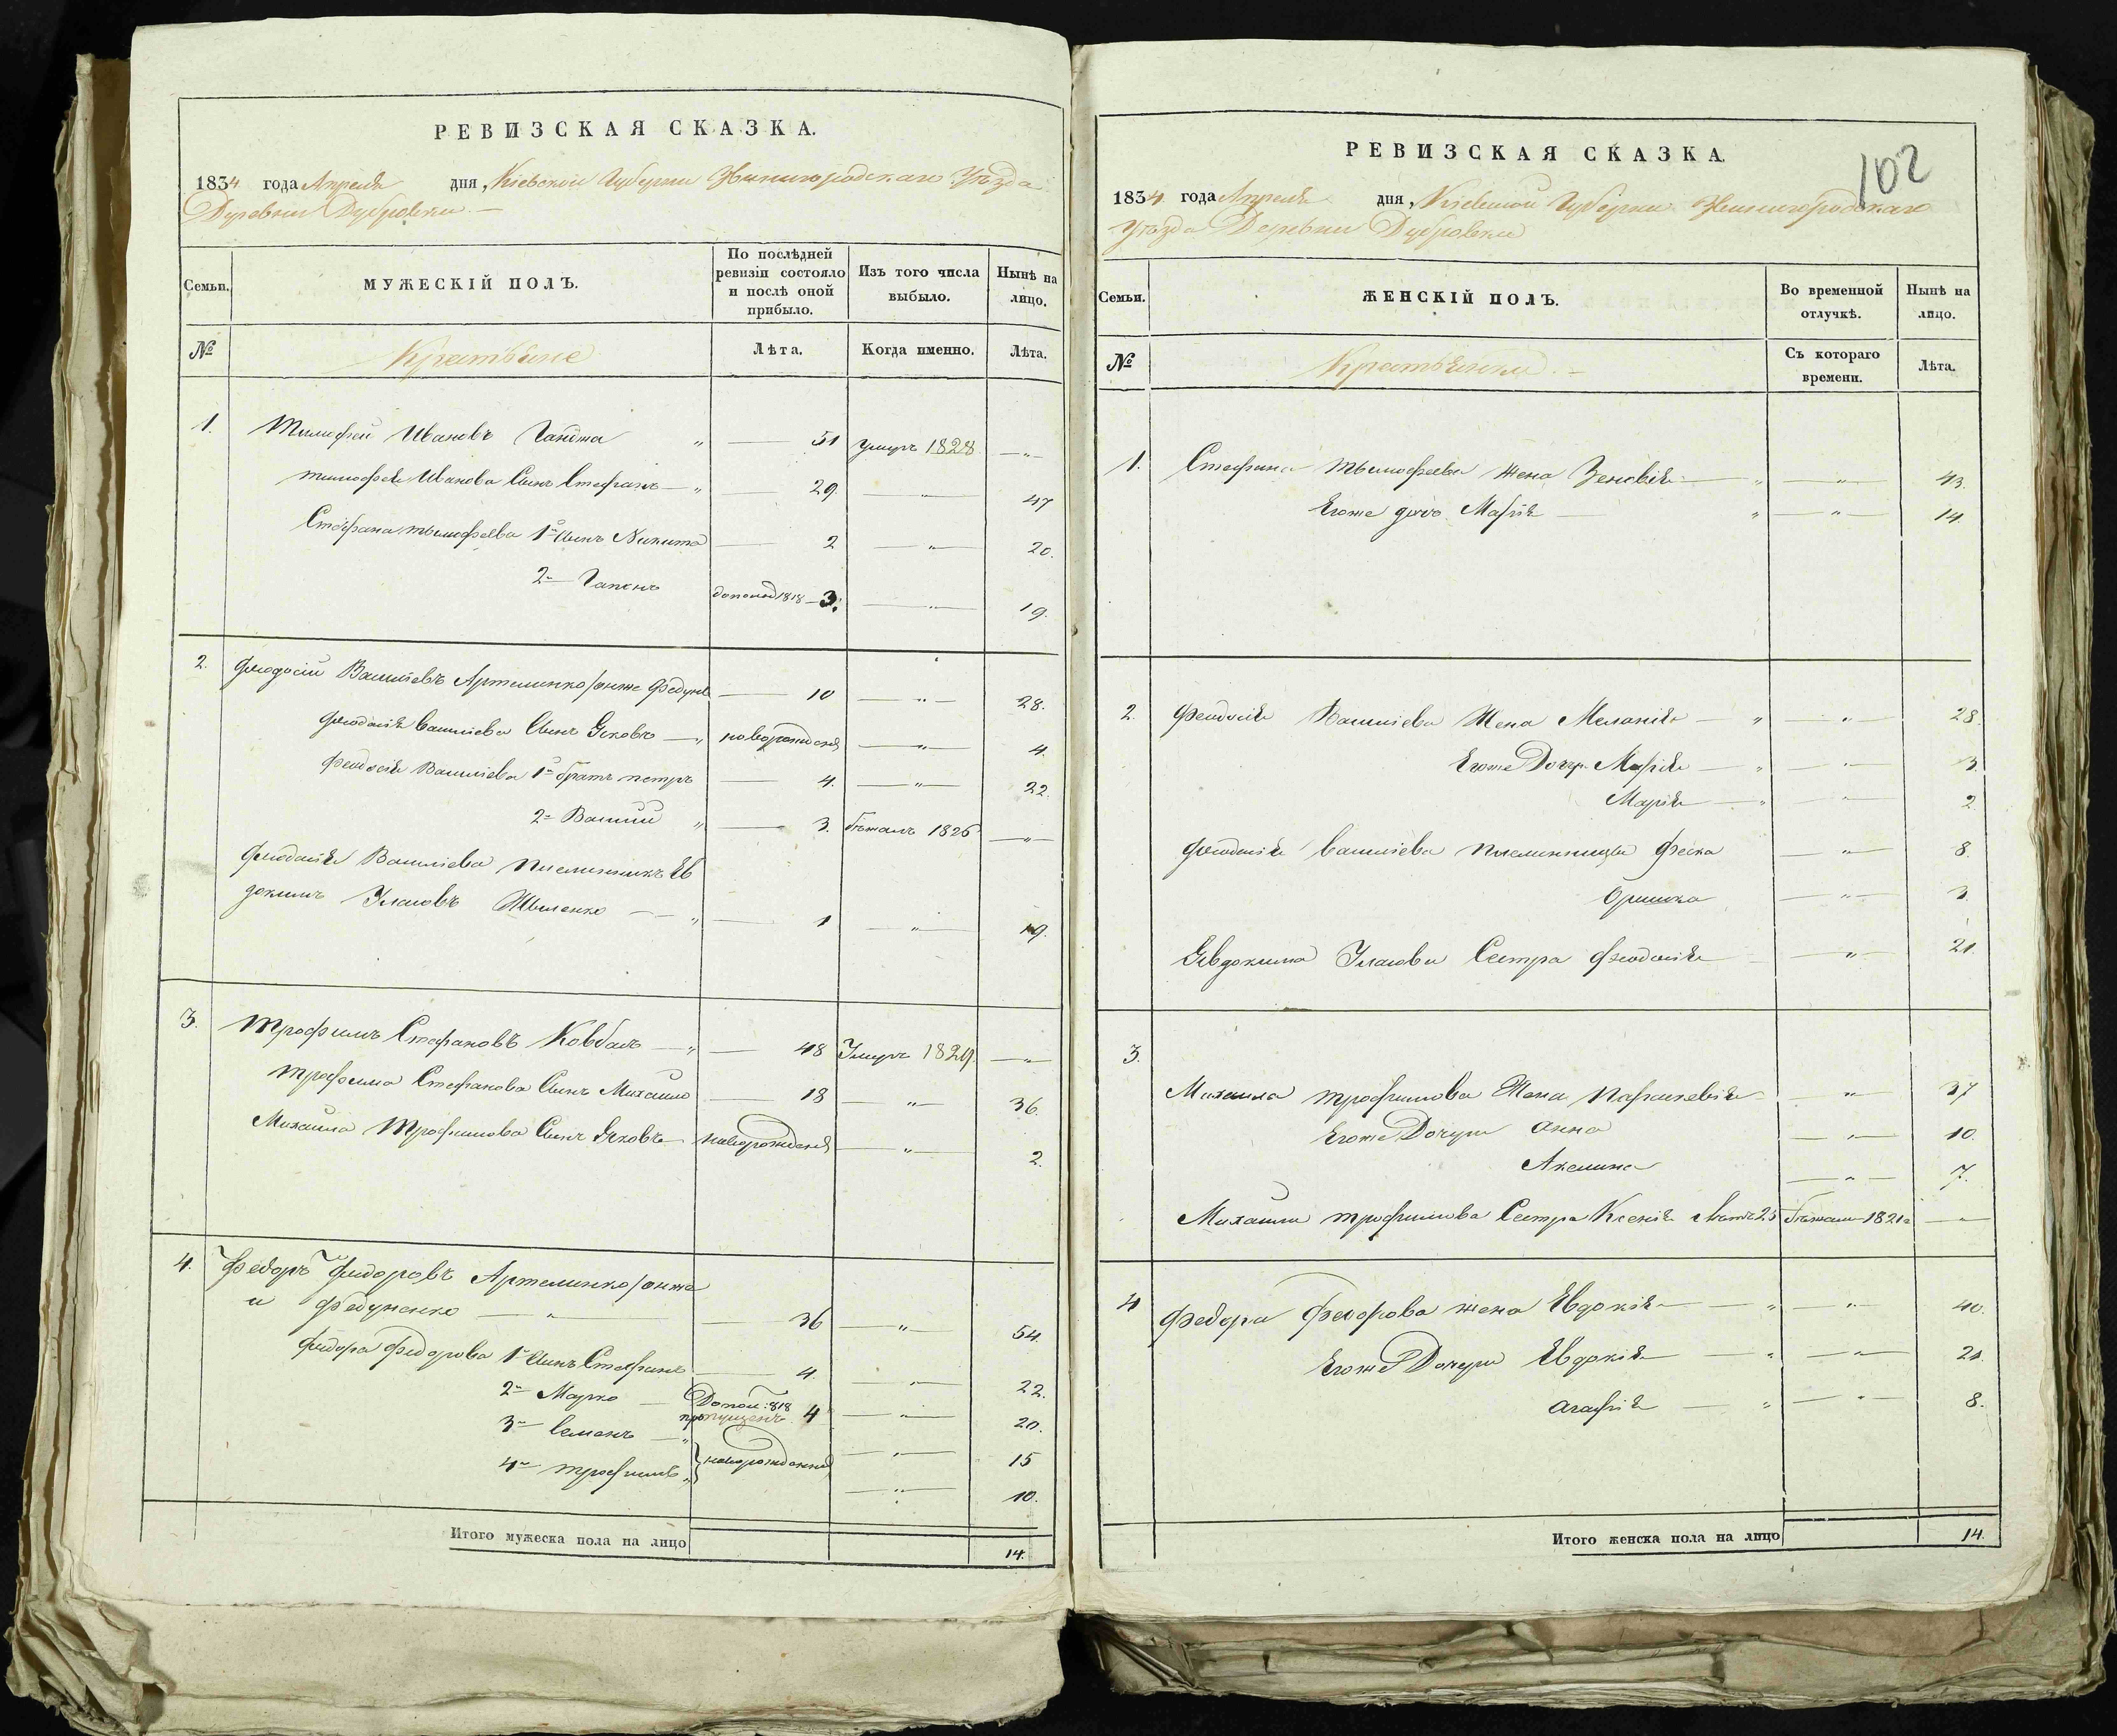 РЕВИЗСКАЯ СКАЗКА.
1834 года Апреля дня, Кіевской Губерніи Звенигородскаго Уѣзда
Деревни Дубровки
Семьи.
МУЖЕСКІЙ ПОЛЪ.
По послѣдней ревизіи состояло и послѣ оной прибыло.
Изъ того числа выбыло.
Нынѣ на лицо.
№
Крестьяне
Лѣта.
Когда именно.
Лѣта.
1. Тимофей Ивановъ Ганджа 51 умеръ 1828
Тимофея Иванова Сынъ Стефанъ 29 47
Стефана тимофеева 1й Сынъ Никита 2 20.
2й Гапонъ 3. 19.
2. Феодосій Василіевъ Артеменко онже Федун 10 28.
Феодосія Василіева Сынъ Яковъ новорожден 4.
Феодосія Василіева 1й братъ петръ 4. 22.
2й Василій 3. бѣжалъ 1826
Феодосія Василіева племянникъ Ев
докимъ Уласовъ 1 19.
3. Трофимъ Стефановъ Ковбаль 48 Умеръ 1829
Трофима Стефанова Сынъ Михайло 18 36.
Михайла Трофимова Сынъ Яковъ новорожден 2.
4. Федоръ Федоровъ Артеменко онже
и Федуненко 36 54.
Федора Федорова 1й Сынъ Стефанъ 4. 22.
2й Марко 818 пропущенъ 4 20.
3й Семенъ 15
4й Трофимъ новорожденны 10.
Итого мужеска пола на лицо 14.
102
РЕВИЗСКАЯ СКАЗКА.
1834 года Апреля дня, Кіевской Губерніи Звенигородскаго
Уѣзда Деревни Дубровки
Семьи.
ЖЕНСКІЙ ПОЛЪ.
Во временной отлучкѣ.
Нынѣ на лицо.
№
Крестьянки
Съ котораго времени.
Лѣта.
1. Стефана тимофеева жена Зеновія 43.
Егоже дочь Марія 14.
2. Феодосія Василіева Жена Меланія 28.
Егоже Дочери Марія 3.
Марія 2
Феодосія Василіева племянницы Феска 8.
Оришка 3.
Евдокима Уласова Сестра Феодосія 21.
3. Михаила трофимова Жена Параскевія 37
Егоже Дочери Анна 10.
Акелина 7.
Михаила трофимова Сестра Ксенія Лѣтъ 25 бѣжала 1821
4 Федора Федорова жена Евдокія 40.
Егоже Дочери Евдокія 21.
Агафія 8.
Итого женска пола на лицо 14.